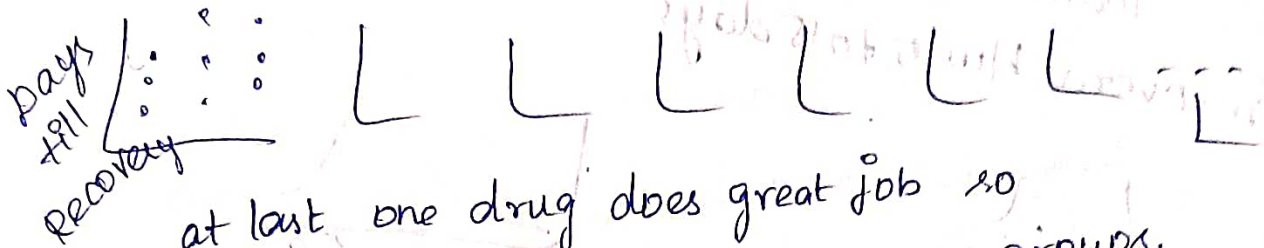 Days
till
Recovery
at last one drug does great job so
groups.